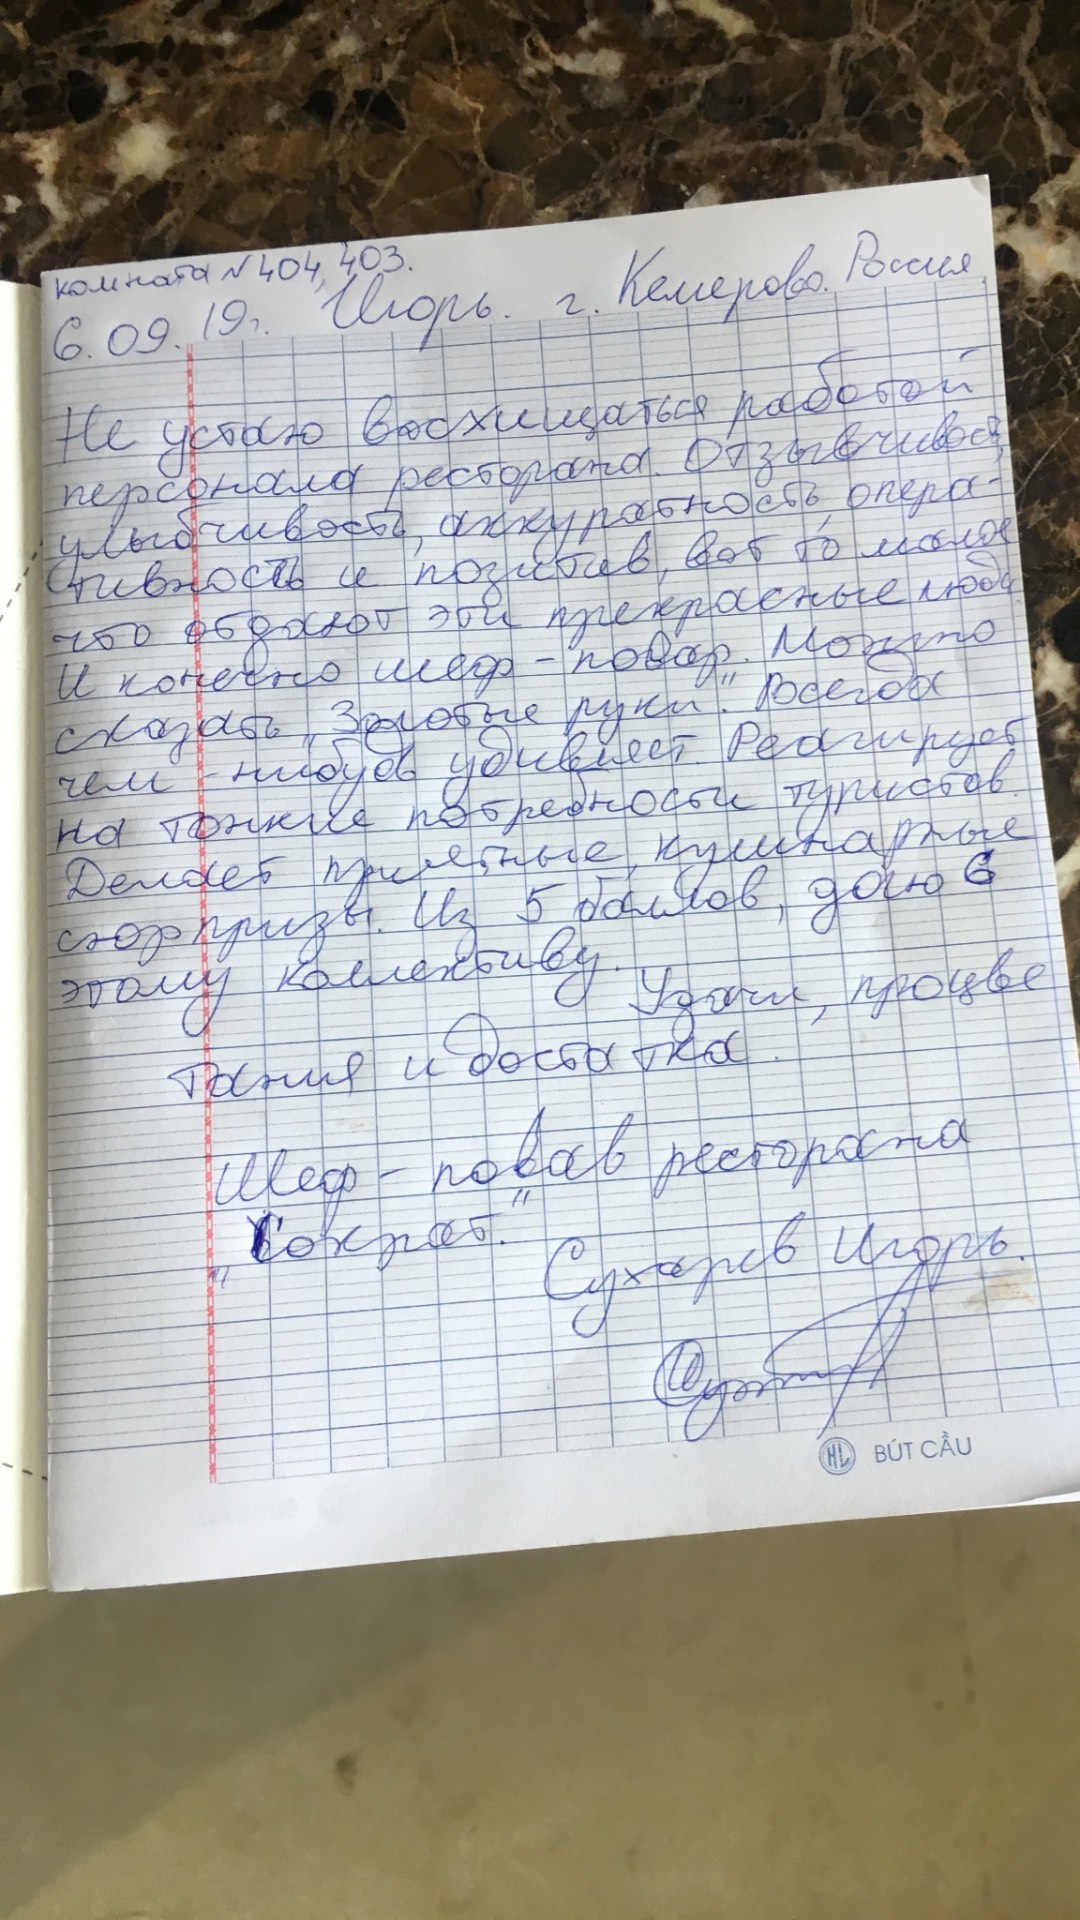 комната № 404, 403.
6.09.19г. Игорь. г. Кемерово. Россия
Не устаю восхищаться работой
персонала ресторана. Отзывчивость,
улыбчивость, аккуратность, опера-
тивность и позитив, вот то малое
что отдают эти прекрасные люди.
И конечно шеф-повар. Можно
сказать „Золотые руки". Всегда
чем-нибудь удивляет. Реагирует
на тонкие потребности туристов.
Делает приятные, кулинарные
сюрпризы. Из 5 баллов, даю 6
этому коллективу.
Удачи, процве
тания и достатка.
Шеф-повав ресторана
„Сократ."
Сухарев Игорь.
HL BÚT CẦU